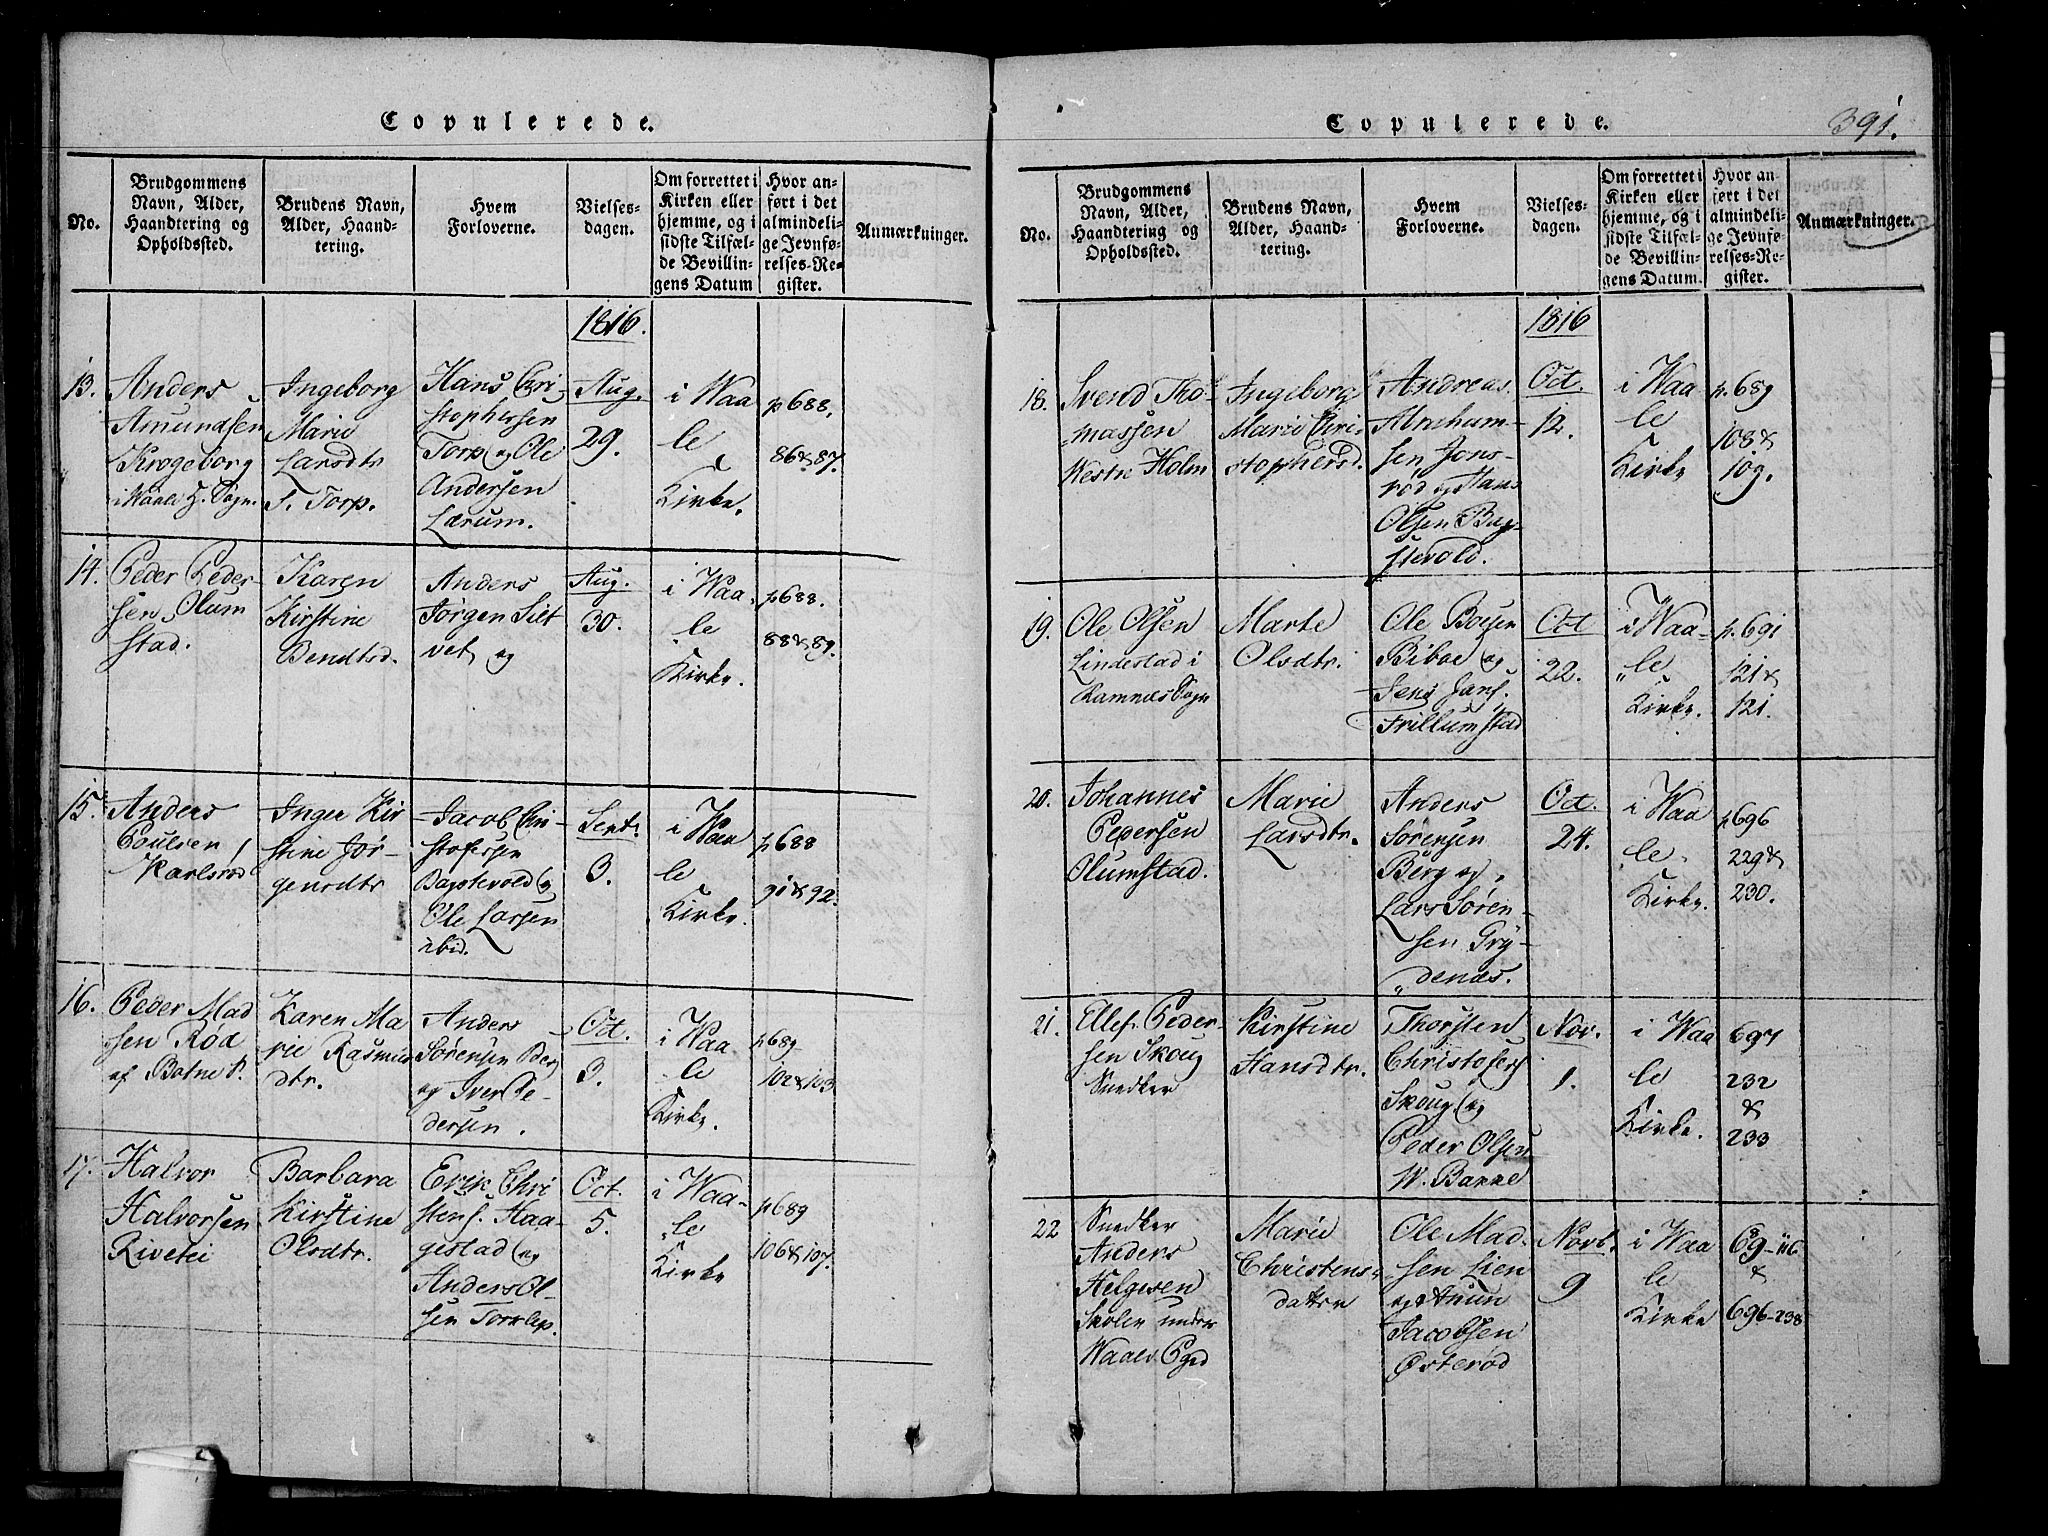 Copulerede.
No.
Brudgommens
Navn, Alder,
Haandtering og
Opholdssted.
Brudens Navn,
Alder, Haand-
tering.
Hvem
Forloverne.
Vielses-
dagen.
Om forrettet i
Kirken eller
hjemme, og i
sidste Tilfæl-
de Bevillin-
gens Datum
Hvor an-
ført i det
almindeli-
ge Jevnfø-
relses-Re-
gister.
Anmærkninger.
1816.
13.
Anders
Amundsen
Krogeborg
i Waale H. Sogn
Ingeborg
Marie
Larsdtr
S. Torp.
Hans Chri-
stophersen
Torp og Ole
Andersen
Lærum.
Aug.
29.
i Waa
le
Kirke.
p 688.
86 & 87.
14.
Peder Peder-
sen Olum
stad.
Karen
Kirstine
Bendtsd.
Anders
Jörgen Silt
vet og
Aug.
30.
i Waa
le
Kirke.
p 688.
88 & 89.
15.
Anders
Poulsen
Karlsrød
Inger Kir
stine Jör-
gensdtr
Jacob Chri-
stofersen
Bagstevold og
Ole Larsen
ibid.
Sept.
3.
i Waa
le
Kirke.
p 688
91 & 92.
16.
Peder Mad
sen Rød
af Botne P.
Karen Ma
rie Rasmus
dtr.
Anders
Sörensen Berg
og Iver Pe-
dersen.
Oct.
3.
i Waa
le
Kirke.
p 689
102 & 103
17.
Halvor
Halvorsen
Rivetei
Barbara
Kirstine
Olsdtr.
Erik Chri
stens. Haa-
gestad og
Anders Ol-
sen Torslep.
Oct.
5.
i Waa-
le
Kirke
p 689
106 & 107.
Copulerede.
391.
No.
Brudgommens
Navn, Alder,
Haandtering og
Opholdssted.
Brudens Navn,
Alder, Haand-
tering.
Hvem
Forloverne.
Vielses-
dagen.
Om forrettet i
Kirken eller
hjemme, og i
sidste Tilfæl-
de Bevillin-
gens Datum.
Hvor an-
ført i det
almindeli-
ge Jevnfø-
relses-Re-
gister.
Anmærkninger.
1816
18.
Svend Tho-
massen
Westre Holm
Ingeborg
Marie Chri-
stophersd.
Andreas
Abraham-
sen Jons-
rød og Hans
Olsen Bag-
stevold.
Oct.
12.
i Waa
le
Kirke
p. 689
108 &
109.
19.
Ole Olsen
Lindestad i
Ramnæs Sogn
Marte
Olsdtr.
Ole Boesen
Biboe og
Jens Jans.
Trillumstad
Oct
22.
i Waa-
le
Kirke.
p. 691
121 &
121.
20.
Johannes
Pedersen
Olumstad.
Marie
Larsdtr.
Anders
Sörensen
Berg og
Lars Sören-
sen Gry-
denæs.
Oct.
24.
i Waa
le
Kirke.
p 696
229 &
230.
21.
Ellef Peder-
sen Skoug
Snedker
Kirstine
Hansdtr.
Thorsten
Christofers
Skoug og
Peder Olsen
W. Banne
Nov.
1.
i Waa
le
Kirke.
697
232
&
233
22
Snedker
Anders
Helgesen
Skolen under
Waale Pgrd
Marie
Christens-
datter
Ole Mad-
sen Lien
og Anun
Jacobsen
Østerød
Novb.
9
i Waa
le
Kirke
689-116
&
696-238